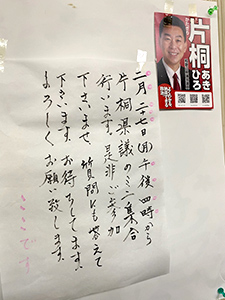 二月二十七日(月)午後四時から
片桐県議のミニ集会
行います。是非ご参加
下さいませ 質問にも答えて
下さいます。お待ちしてます。
よろしくお願い致します。
片桐
あき
ひろ